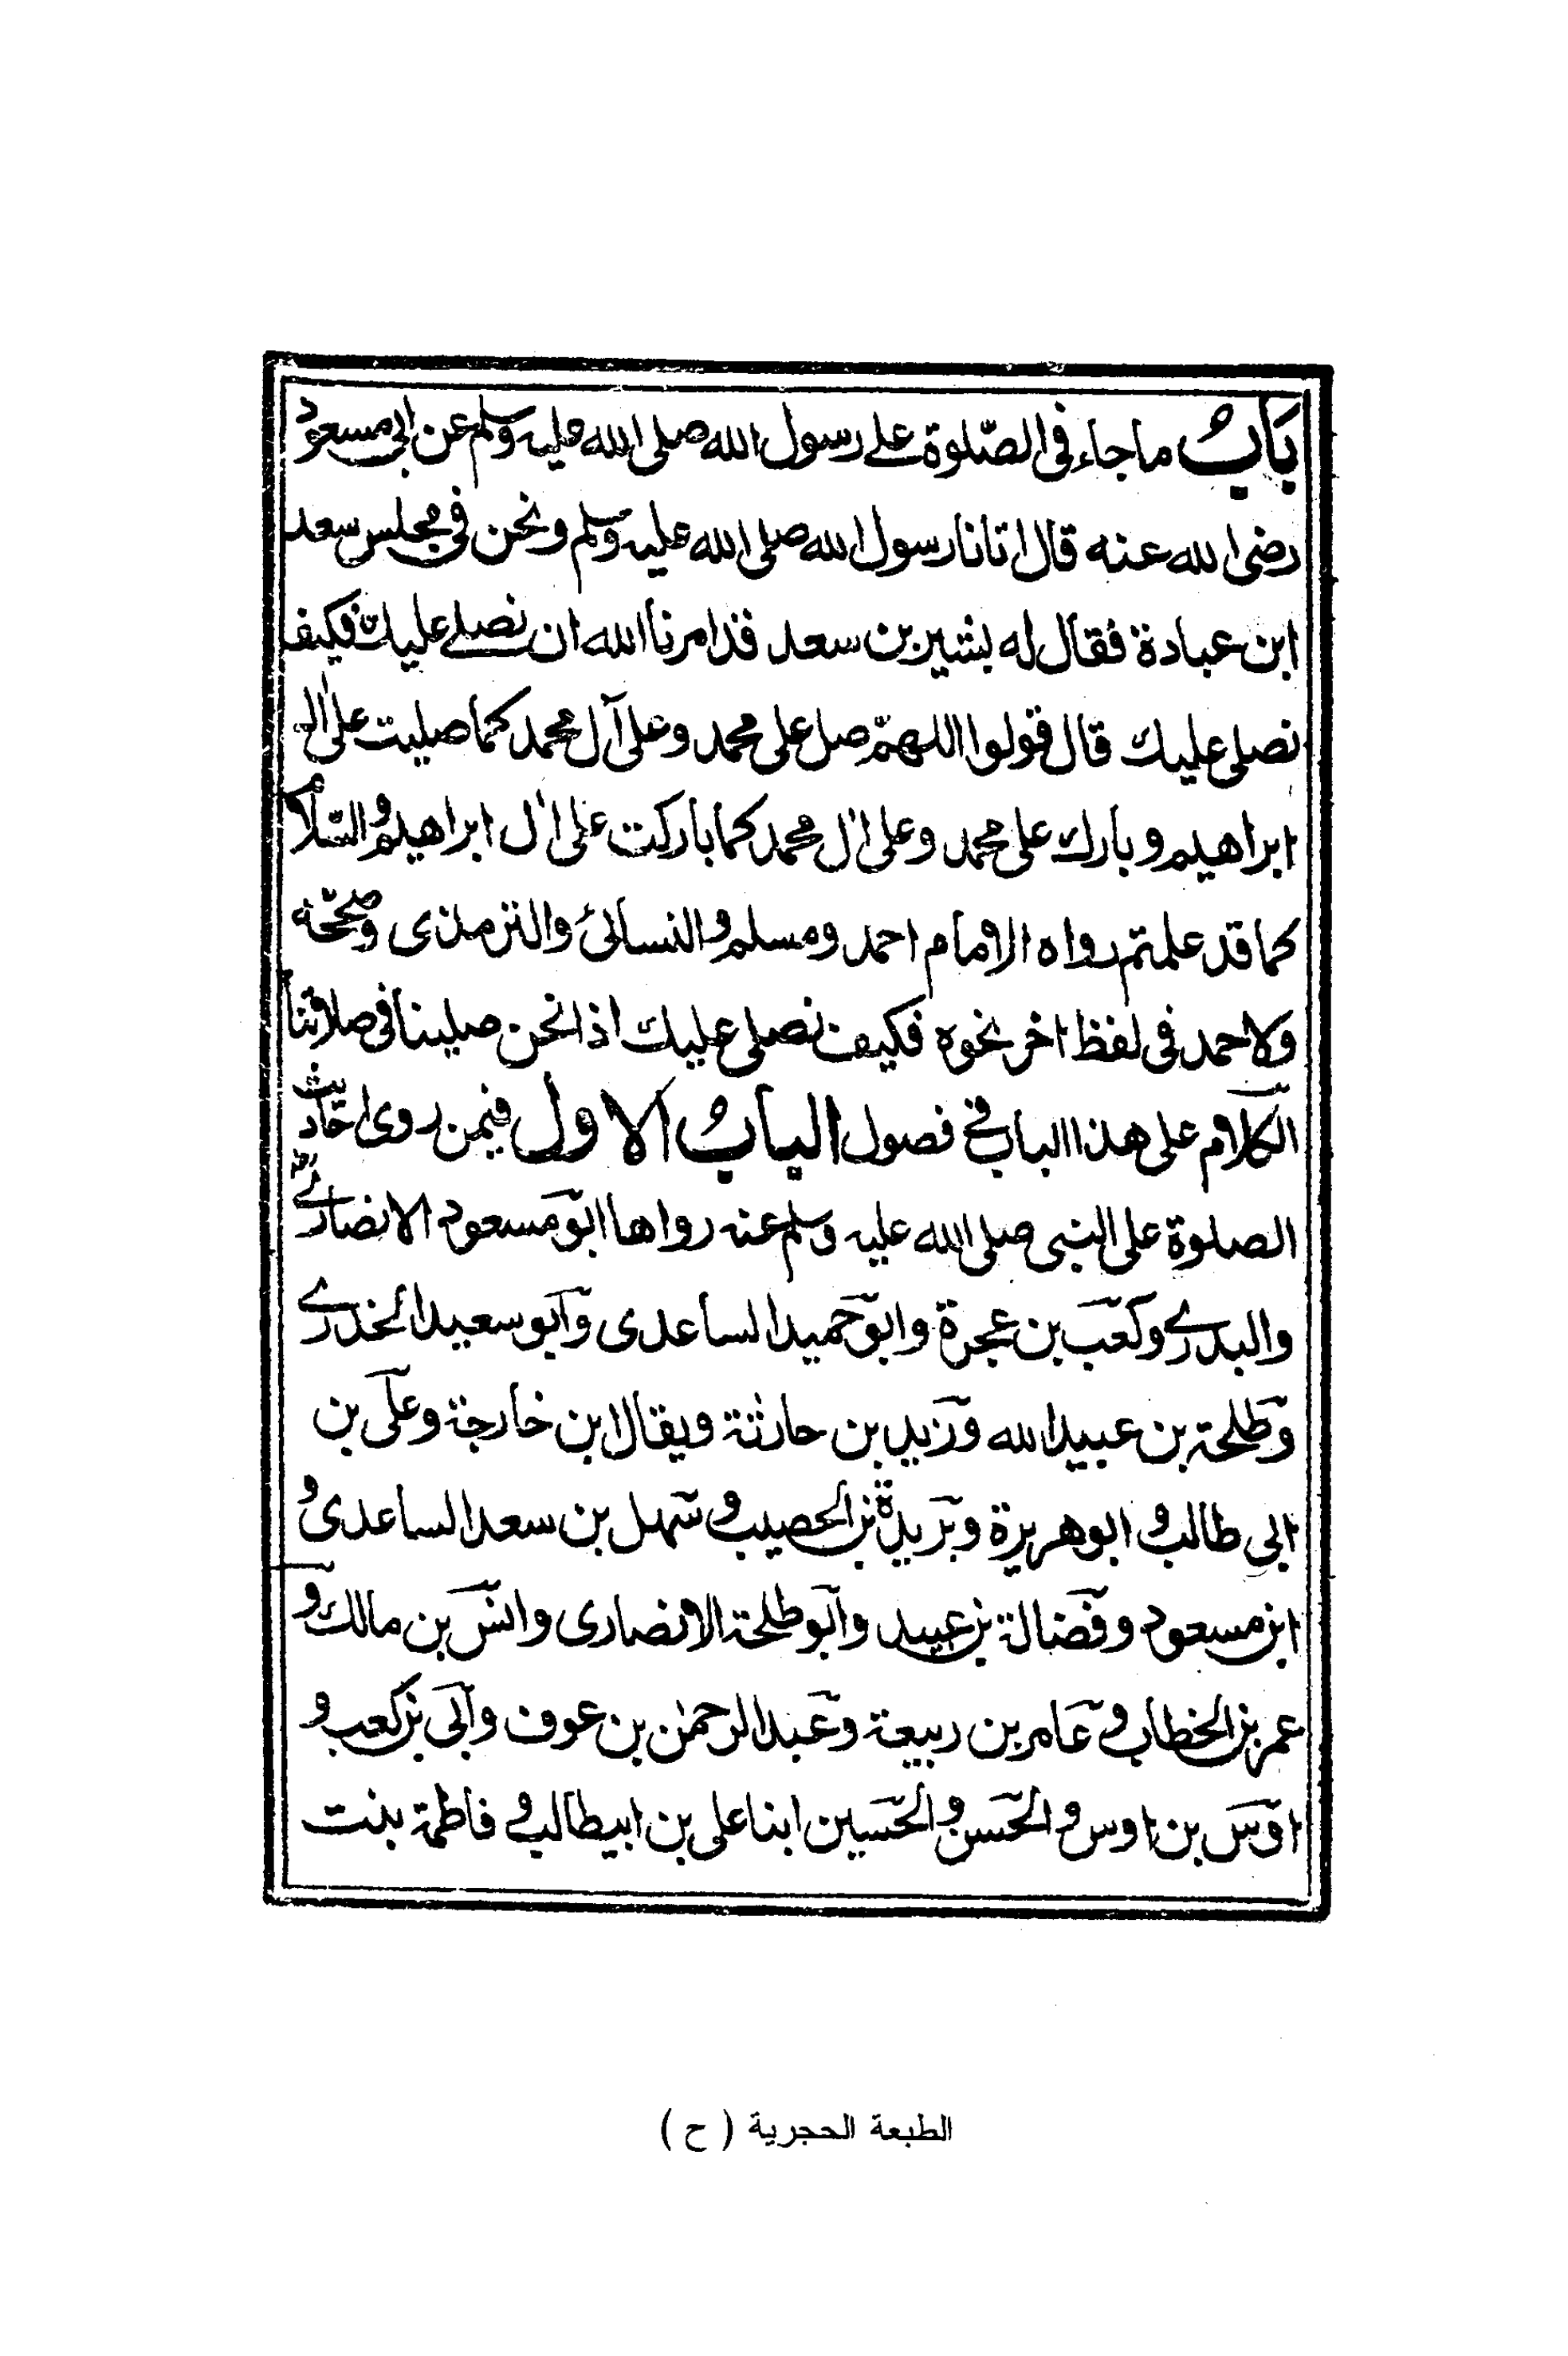 باب ما جاء في الصّلوة على رسول الله صلى الله عليه وسلم عن ابي مسعود
رضي الله عنه قال اتانا رسول الله صلى الله عليه وسلم ونحن في مجلس سعد
ابن عبادة فقال له بشير بن سعد قد امرنا الله ان نصلي عليك فكيف
نصلي عليك قال قولوا اللهمّ صل على محمد وعلى آل محمد كما صليت على ال
ابراهيم وبارك على محمد وعلى ال محمد كما باركت على ال ابراهيم والسّلام
كما قد علمتم رواه الامام احمد ومسلم والنسائي والترمذي وصححّه
ولاحمد في لفظ اخر نحوه فكيف نصلي عليك اذا نحن صلينا في صلاتنا
الكلام على هذا الباب في فصول الباب الاول فيمن روى احاديث
الصلوة على النبي صلى الله عليه وسلم عنه رواها ابو مسعود الانصاري
والبدري وكعب بن عجرة وابو حميد الساعدي وابو سعيد الخدري
وطلحة بن عبيد الله وزيد بن حارثة ويقال ابن خارجة وعلي بن
ابي طالب و ابو هريرة وبريدة بن الحصيب و سهل بن سعد الساعدي و
ابن مسعود وفضالة بن عبيد وابو طلحة الانصاري وانس بن مالك و
عمر بن الخطاب و عامر بن ربيعة وعبد الرحمٰن بن عوف وأبي بن كعب و
اوس بن اوس و الحسن والحسين ابنا علي بن ابيطالب و فاطمة بنت
الطبعة الحجرية ( ح )